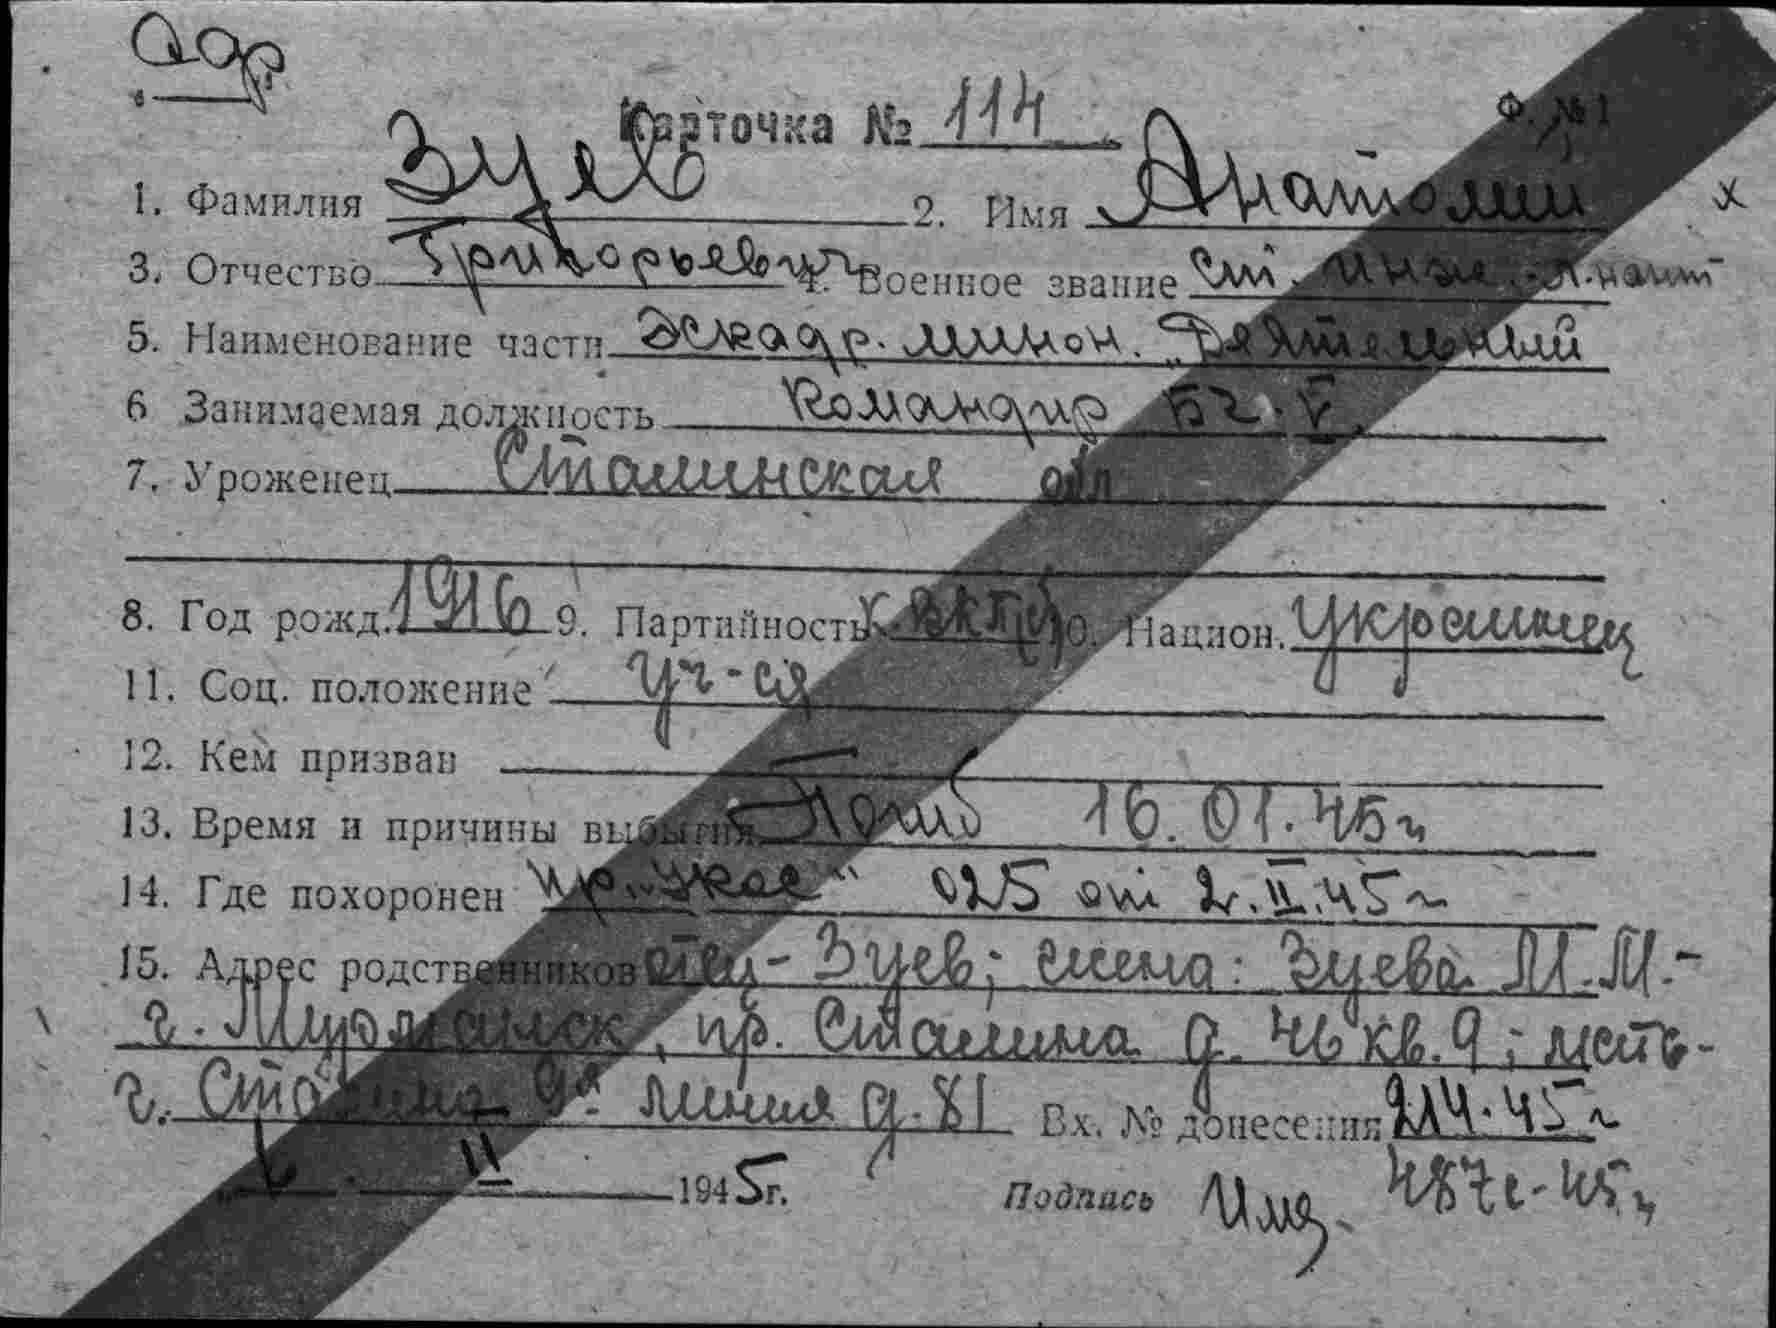 адр
Карточка № 114
Ф. № 1
1. Фамилия Зуев 2. Имя Анатолий х
3. Отчество Григорьевич 4. Военное звание Ст. инж.-к. лейт
5. Наименование части Эскадр. минон. "Деятельный
6 Занимаемая должность командир БЧ-V
7. Уроженец Сталинская обл
8. Год рожд. 1916 9. Партийность ВКП(б) 10. Национ. украинец
11. Соц. положение уч-ся
12. Кем призван
13. Время и причины выбытия Погиб 16.01.45 г
14. Где похоронен 025 от 2.II.45 г
15. Адрес родственников отец - Зуев; жена: Зуева М.М.-
г. Мурманск, пр. Сталина д. 46 кв. 9; мать-
г. Сталино 9я линия д. 81 Вх. № донесения 214.45 г
II 1945 г. Подпись